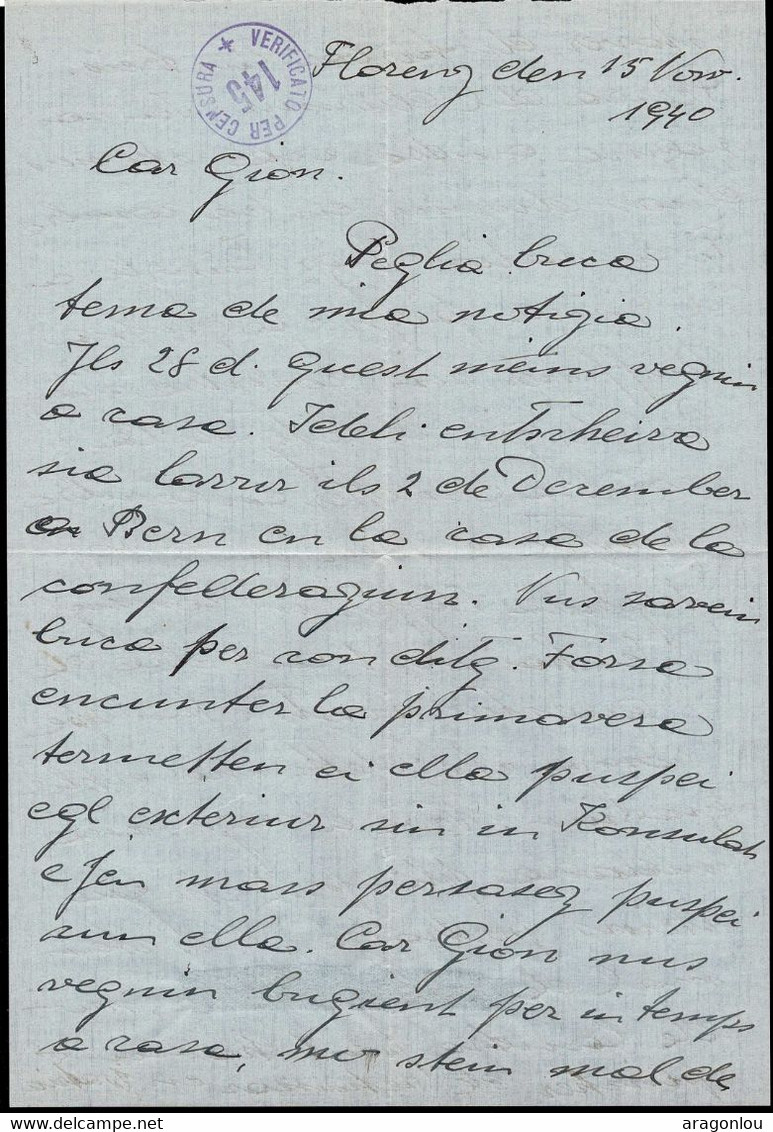 VERIFICATO PER CENSURA
145
Florenz den 15 Nov.
1940
Car Gion.
Peglia buca
tema de mia notizia.
Ils 28 d. quest meins vegnin
a casa. Fideli entscheiva
sia lavur ils 2 de December
Bern en la casa de la
confelleraziun. Nus savein
buca per con ditg. Forsa
encunter la primavera
termetten ei ella puspei
egl exteriur sin in Konsulat
e Jeu mass persasez puspei
cun ella. Car Gion nus
vegnin bugient per in temps
a casa, mo stein mal de
aragonlou